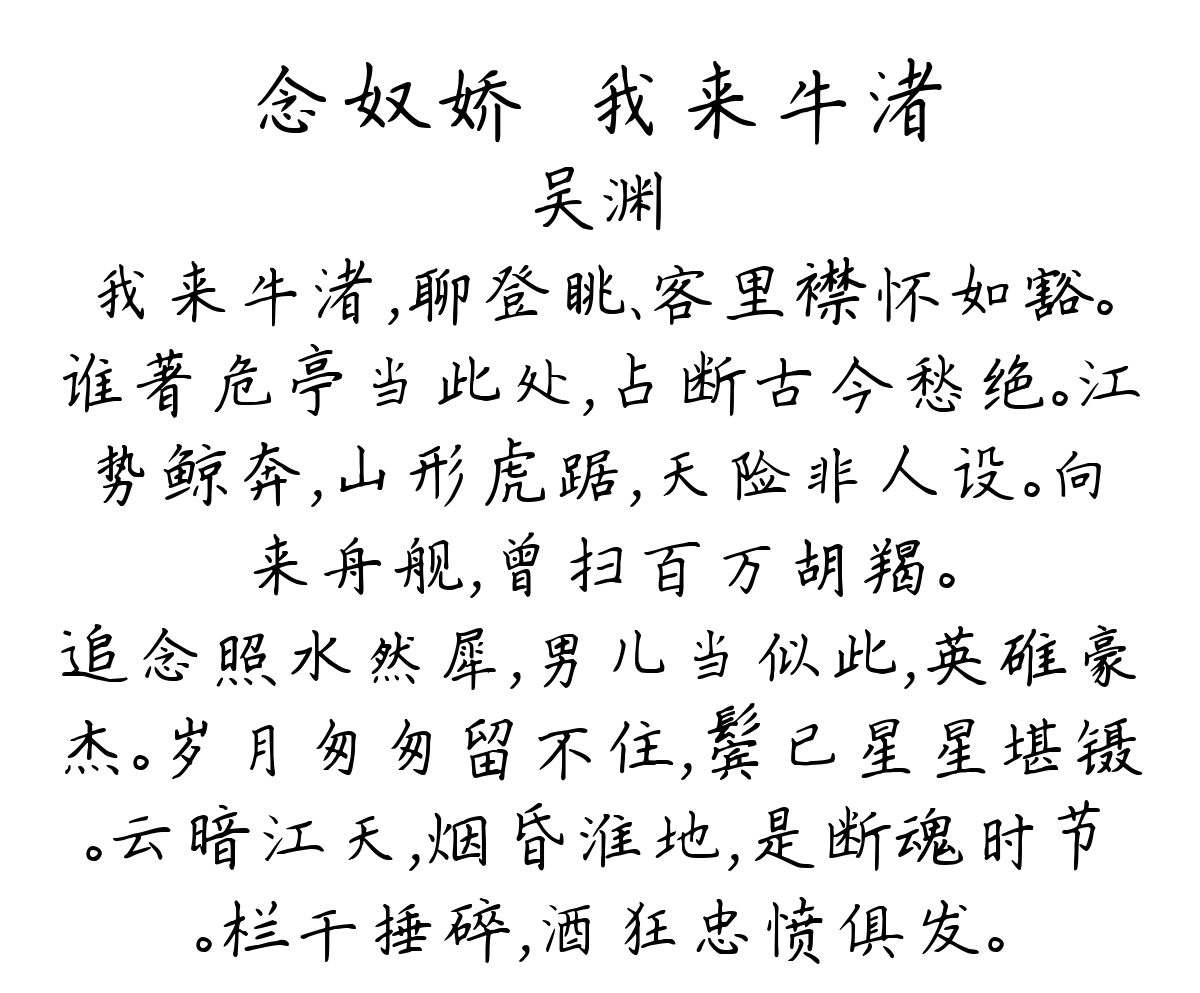 念奴娇 我来牛渚
吴渊
我来牛渚,聊登眺、客里襟怀如豁。
谁著危亭当此处,占断古今愁绝。江
势鲸奔,山形虎踞,天险非人设。向
来舟舰,曾扫百万胡羯。
追念照水然犀,男儿当似此,英碓豪
杰。岁月匆匆留不住,鬓已星星堪镊
。云暗江天,烟昏淮地,是断魂时节
。栏干捶碎,酒狂忠愤俱发。